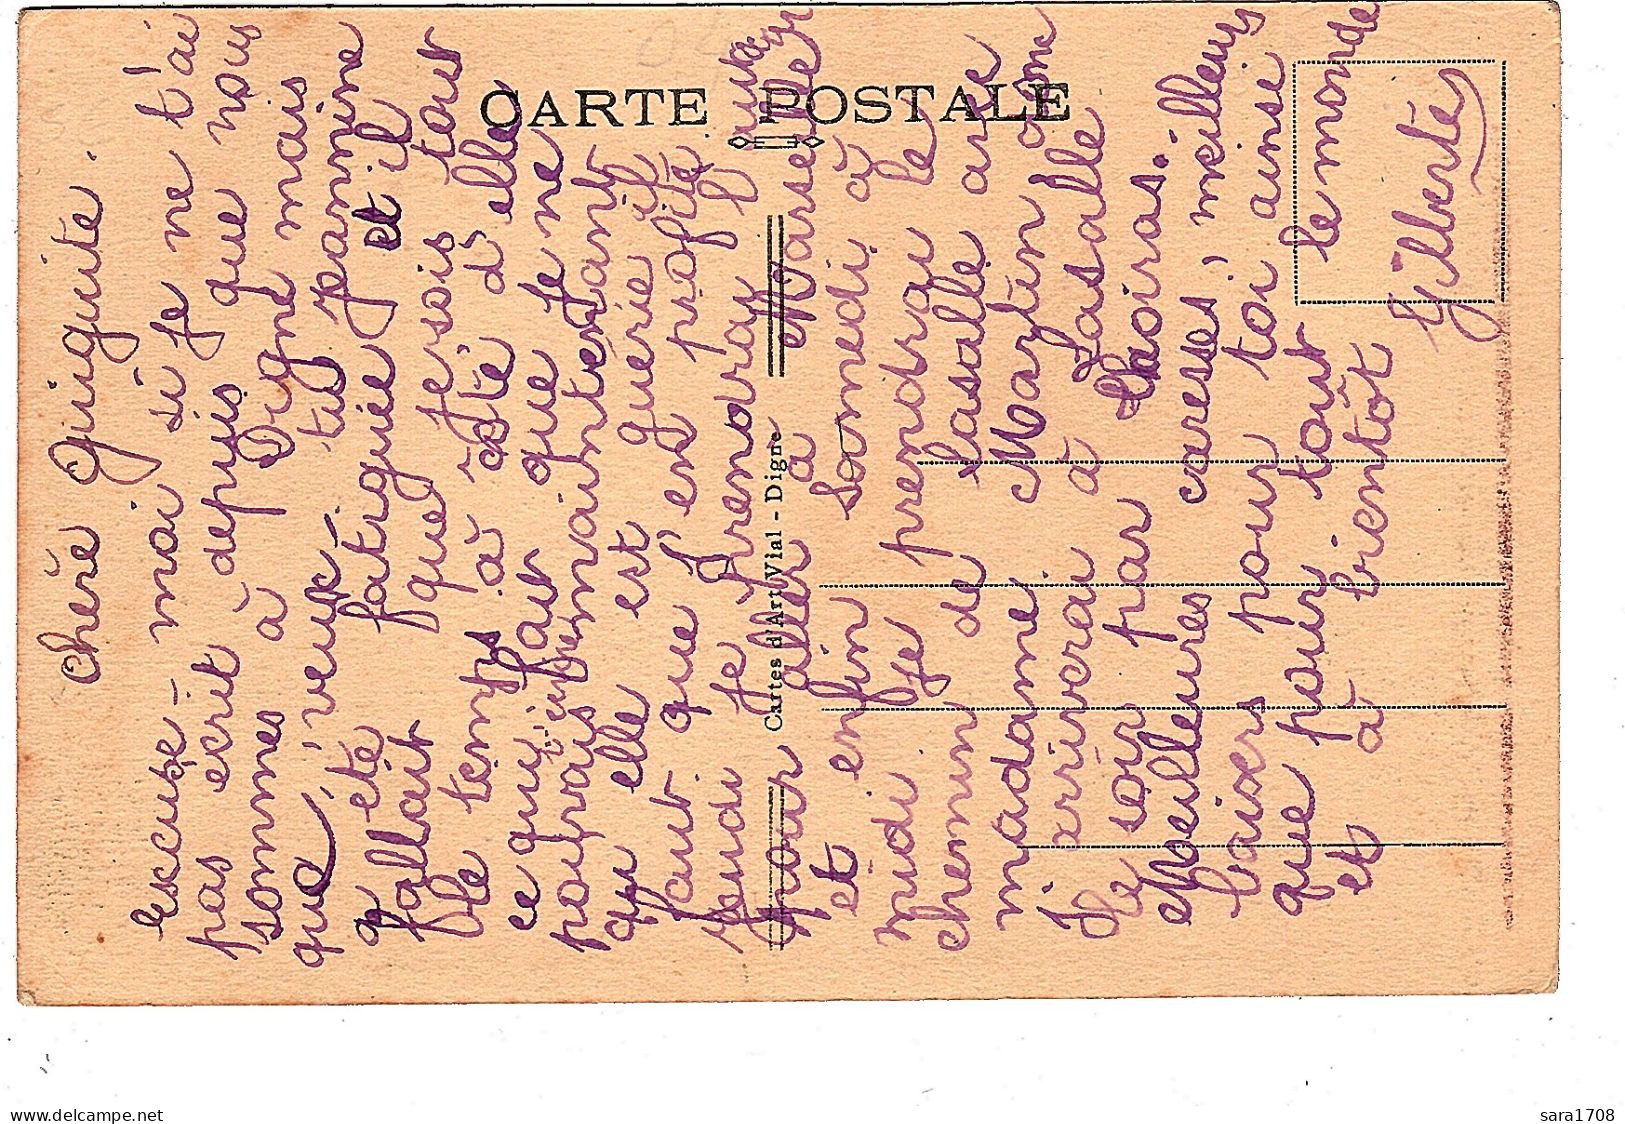 CARTE POSTALE
Cartes d'Art Vial - Digne
Chère Guiguite.
excuse-moi si je ne t'ai
pas écrit depuis que nous
sommes à Digne mais
que, veux-tu Jeannine
a été fatiguée et il
fallait que je sois tout
le temps à côté d'elle
ce qui fait que je ne
pouvais
maintenant
qu elle est guérie il
faut que j'en profite
Jeudi je prendrai l auto car
pour aller à Marseille
et enfin Samedi à
midi je prendrai le
chemin de Lasalle avec
madame Martin
J arriverai à Lasalle
le soir par
Meilleures caresses, meilleurs
baisers pour toi ainsi
que pour tout le monde
et à bientôt
Gilberte
delcampe.net
sara1708